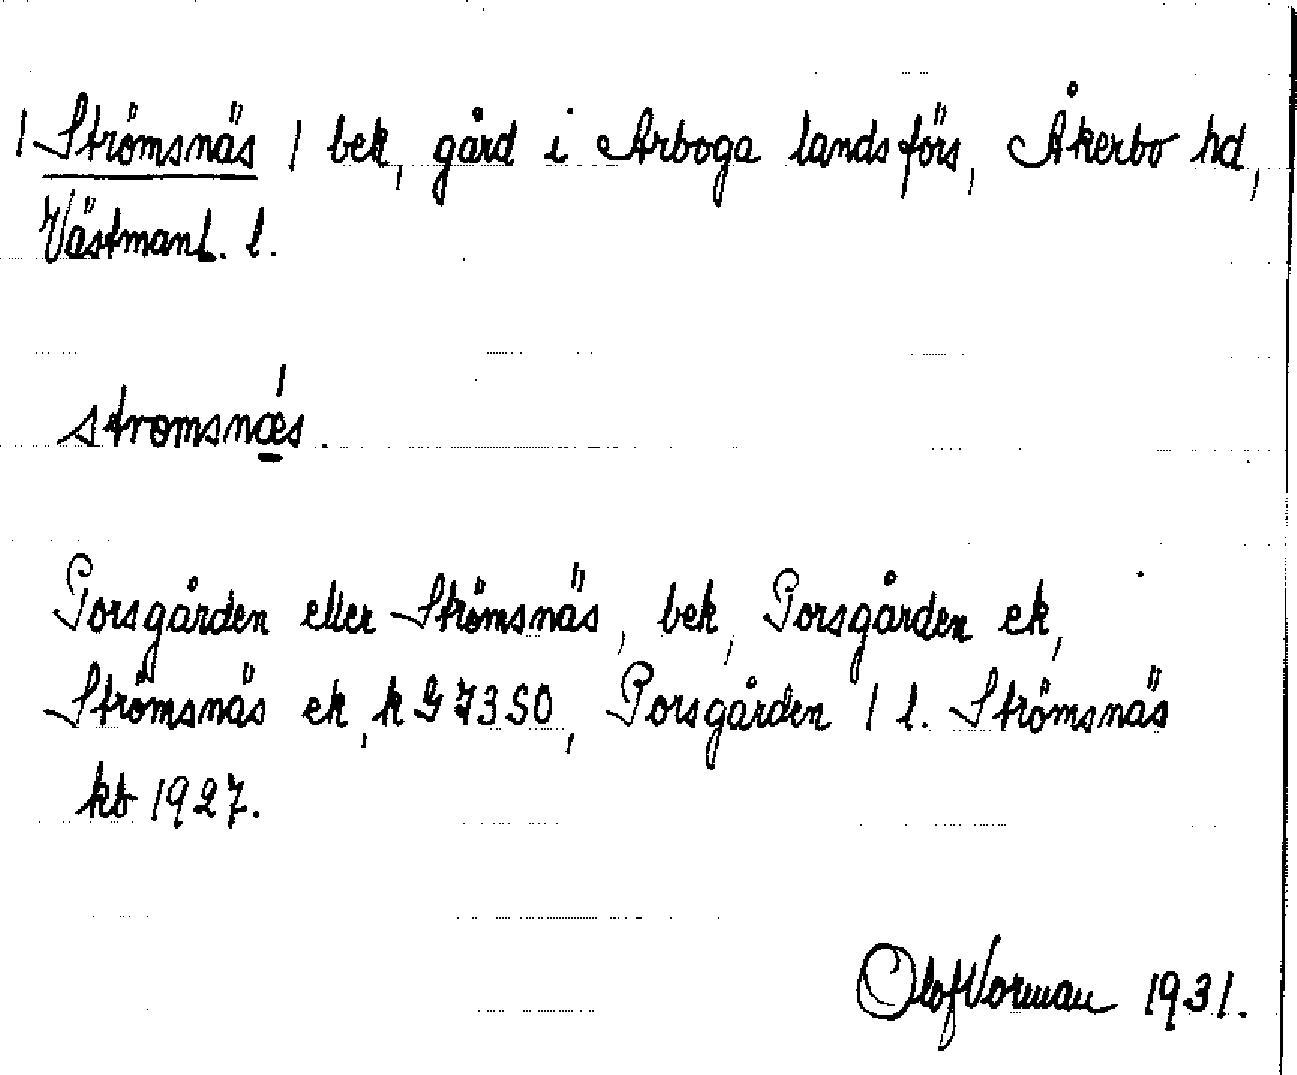 | Strömsnäs | bek, gård i Arboga landsförs, Åkerbo hd,
Västmanl. l.
stromsnǽ̱s.
Porsgården eller Strömsnäs, bek, Porsgården ek,
Strömsnäs ek, k G 73 SO, Porsgården | l. Strömsnäs
kb 1927.
Olof Vorman 1931.